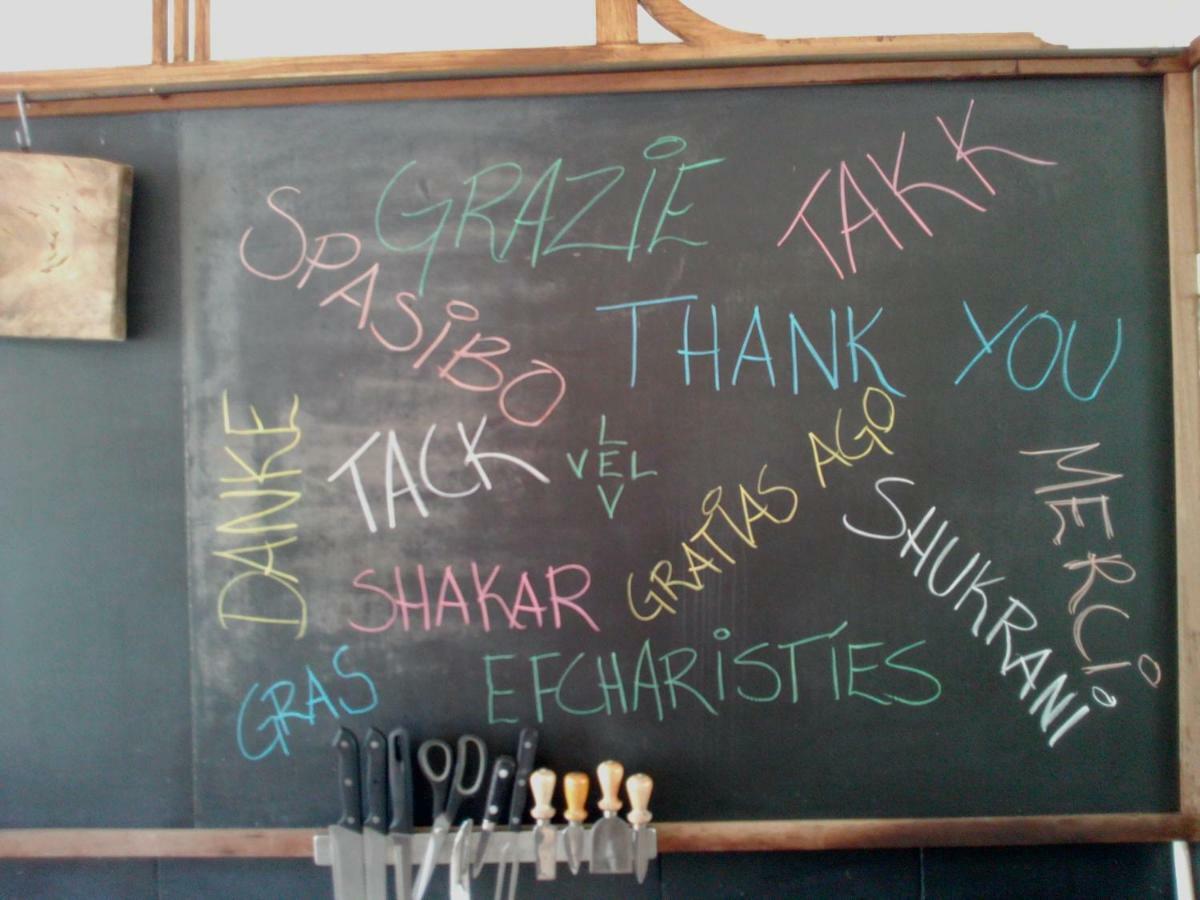 GRAZIE
TAKK
SPASIBO
THANK YOU
DANKE
TACK
L
VEL
V
GRATIAS AGO
MERCI
SHUKRANI
SHAKAR
GRAS
EFCHARISTIES